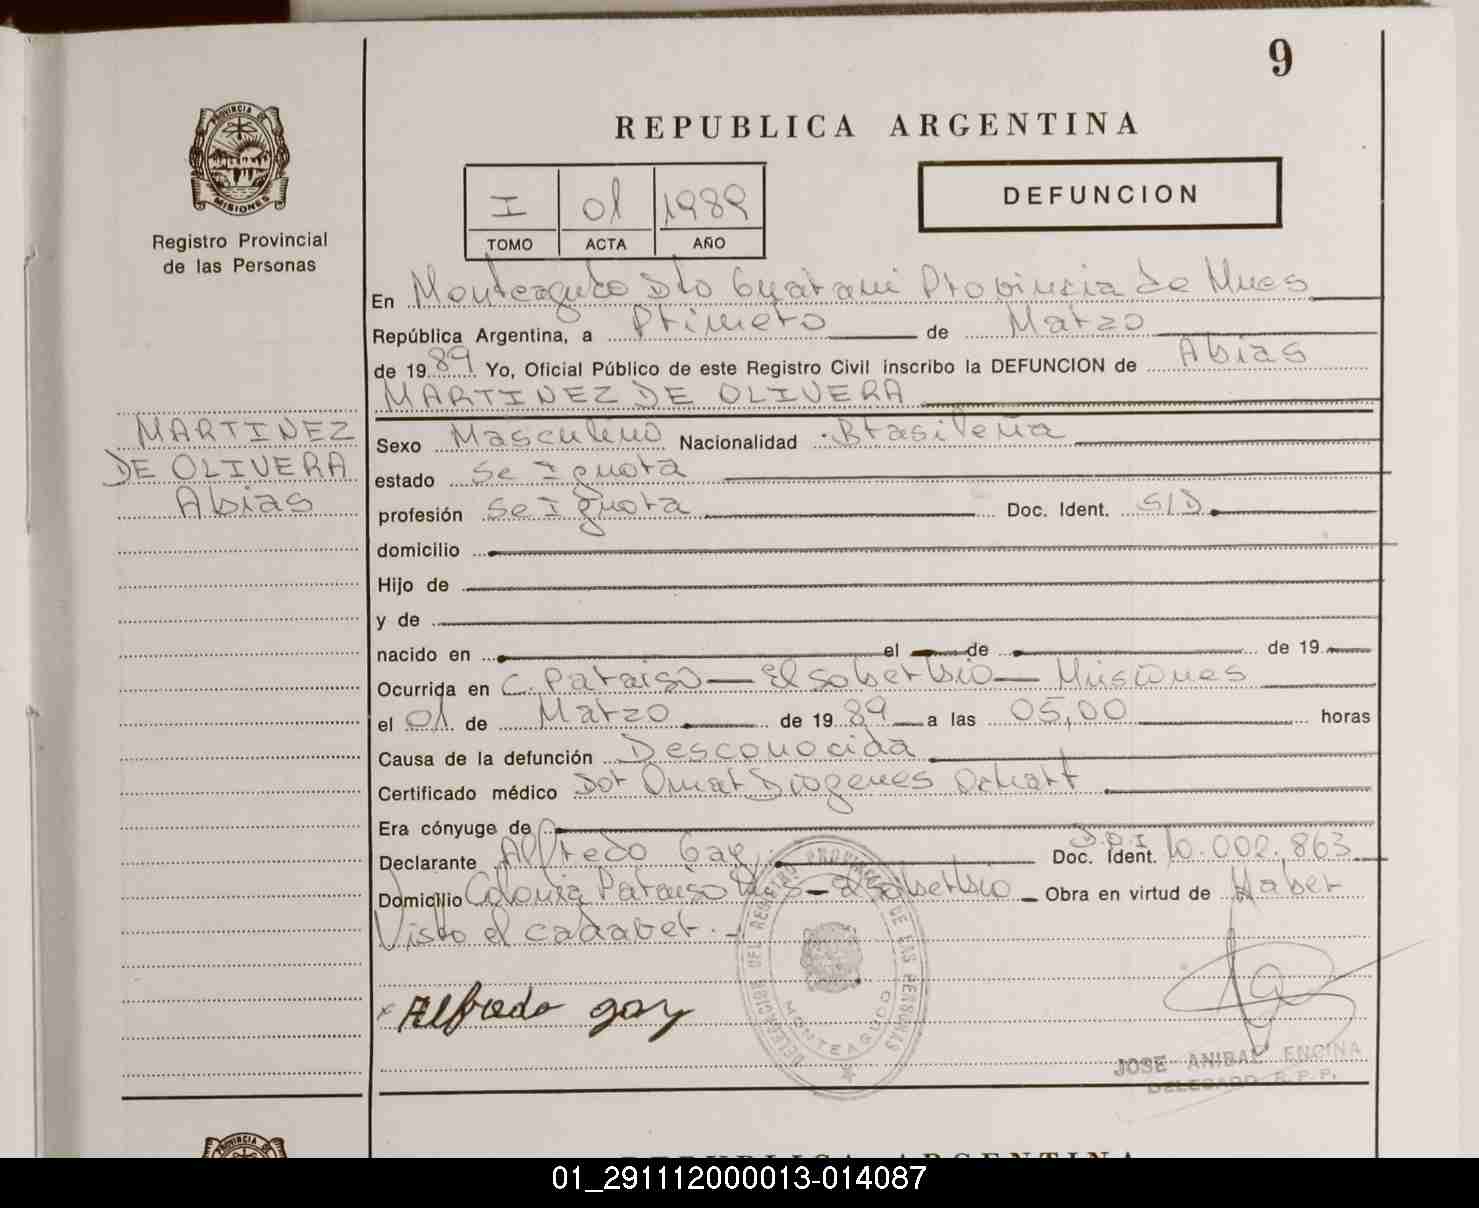 9
PROVINCIA DE
MISIONES
Registro Provincial
de las Personas
REPUBLICA ARGENTINA
I 01 1989
TOMO ACTA AÑO
DEFUNCION
En Monteagudo Dto Guarani Provincia de Mnes
República Argentina, a Primero de Marzo
de 1989 Yo, Oficial Público de este Registro Civil inscribo la DEFUNCION de Abias
MARTINEZ DE OLIVERA
MARTINEZ
DE OLIVERA
Abias
Sexo Masculino Nacionalidad Brasileña
estado Se Ignora
profesión Se Ignora Doc. Ident. S/D
domicilio
Hijo de
y de
nacido en el de de 19
Ocurrida en C. Paraiso — El soberbio — Misiones
el 01 de Marzo de 1989 a las 05,00 horas
Causa de la defunción Desconocida
Certificado médico Dor Omar Diogenes
Era cónyuge de
Declarante Alfredo Gay Doc. Ident. D.N.I 10.002.863
Domicilio Colonia Paraiso Mnes - El soberbio Obra en virtud de Haber
Visto el cadaver.-
x Alfredo gay
DELEGACION DEL REGISTRO PROVINCIAL DE LAS PERSONAS
MONTEAGUDO
JOSE ANIBAL ENCINA
DELEGADO R.P.P.
PROVINCIA DE
REPUBLICA ARGENTINA
01_291112000013-014087